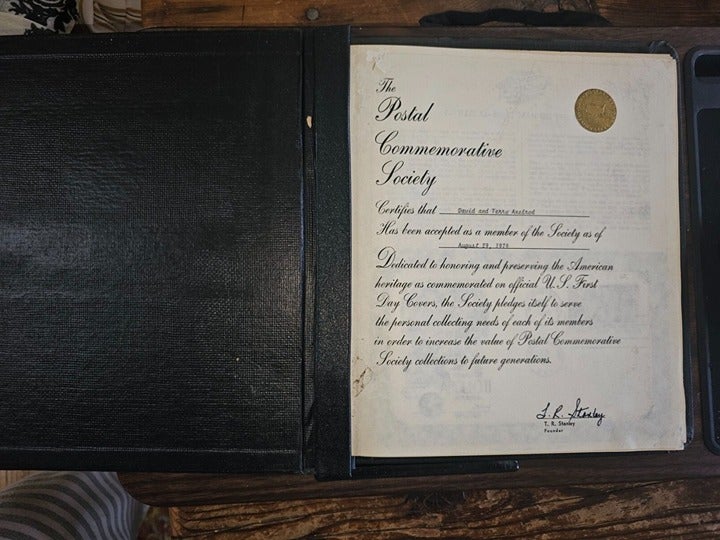 The
Postal
Commemorative
Society
Certifies that David and Terry
Has been accepted as a member of the Society as of
August 29, 1978
Dedicated to honoring and preserving the American
heritage as commemorated on official U.S. First
Day Covers, the Society pledges itself to serve
the personal collecting needs of each of its members
in order to increase the value of Postal Commemorative
Society collections to future generations.
T. R. Stanley
T. R. Stanley
Founder